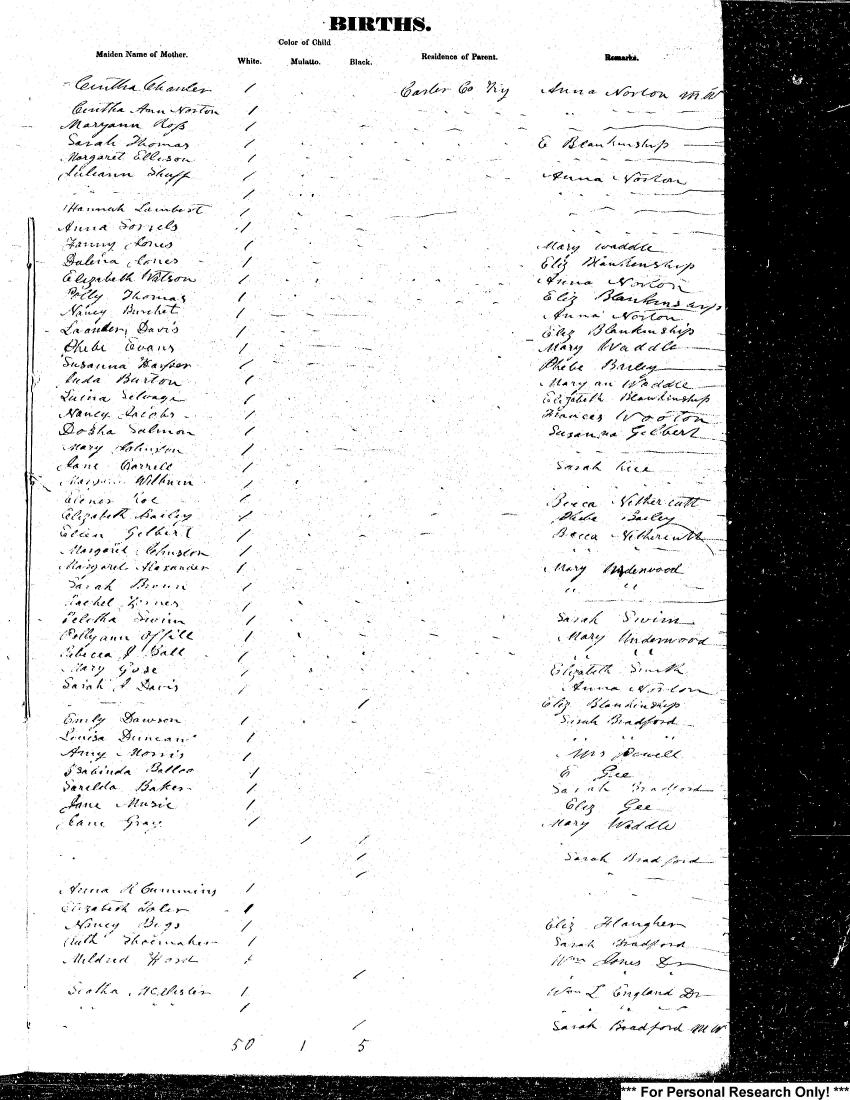 BIRTHS.
Color of Child
Maiden Name of Mother. White. Mulatto. Black. Residence of Parent. Remarks.
Cintha Chanler 1 Carter Co Ky Anna Norton M W
Cintha Ann Norton 1
Maryann Ross 1
Sarah Thomas 1 E Blankinship
Margaret Ellison 1
Juliann Shuff 1 Anna Norton
1
Hannah Lambert 1
Anna Sorrels 1
Fanny Jones 1 Mary Waddle
Dulena Jones 1 Eliz Blankinship
Elizabeth Watson 1 Anna Norton
Polly Thomas 1 Eliz Blankinship
Nancy Burchet 1 Anna Norton
Davis 1 Eliz Blankinship
Phebe Evans 1 Mary Waddle
Susanna Harper 1 Phebe Bailey
Burton 1 Mary an Waddle
Selvage 1 Elizabeth Blankinship
Nancy Jacobs 1 Frances Wooton
Dosha Salmon 1 Susanna Gilbert
Mary Johnston 1
Jane Carrell 1 Sarah Rice
Wilburn 1
Elenor 1 Becca Nethercutt
Elizabeth Bailey 1 Phebe Bailey
Ellen Gilbert 1 Becca Nethercutt
Margaret Johnston 1 " "
Margaret Alexander 1 Mary Underwood
Sarah Brown 1 " "
Rachel 1
Swim 1 Sarah Swim
Pollyann Offill 1 Mary Underwood
Rebecca J Ball 1 " "
Mary Gose 1 Elizabeth Smith
Sarah J Davis 1 Anna Norton
1 Eliz Blankinship
Emily Dawson 1 Sarah Bradford
Louisa Duncan 1 " " "
Amy Morris 1 Mrs Powell
Balloo 1 E Gee
Sarelda Baker 1 Sarah Bradford
Jane Music 1 Eliz Gee
Jane Gray 1 Mary Waddle
1 1
1 Sarah Bradford
1
Anna R Cummins 1
Elizabeth 1
Nancy Bigs 1 Eliz Flaugher
Ruth Shoemaker 1 Sarah Bradford
Mildred Hord 1 Wm Jones Dr
1 " "
McAlister 1 Wm L England Dr
" " 1 " " "
1 Sarah Bradford M W
50 1 5
*** For Personal Research Only! ***